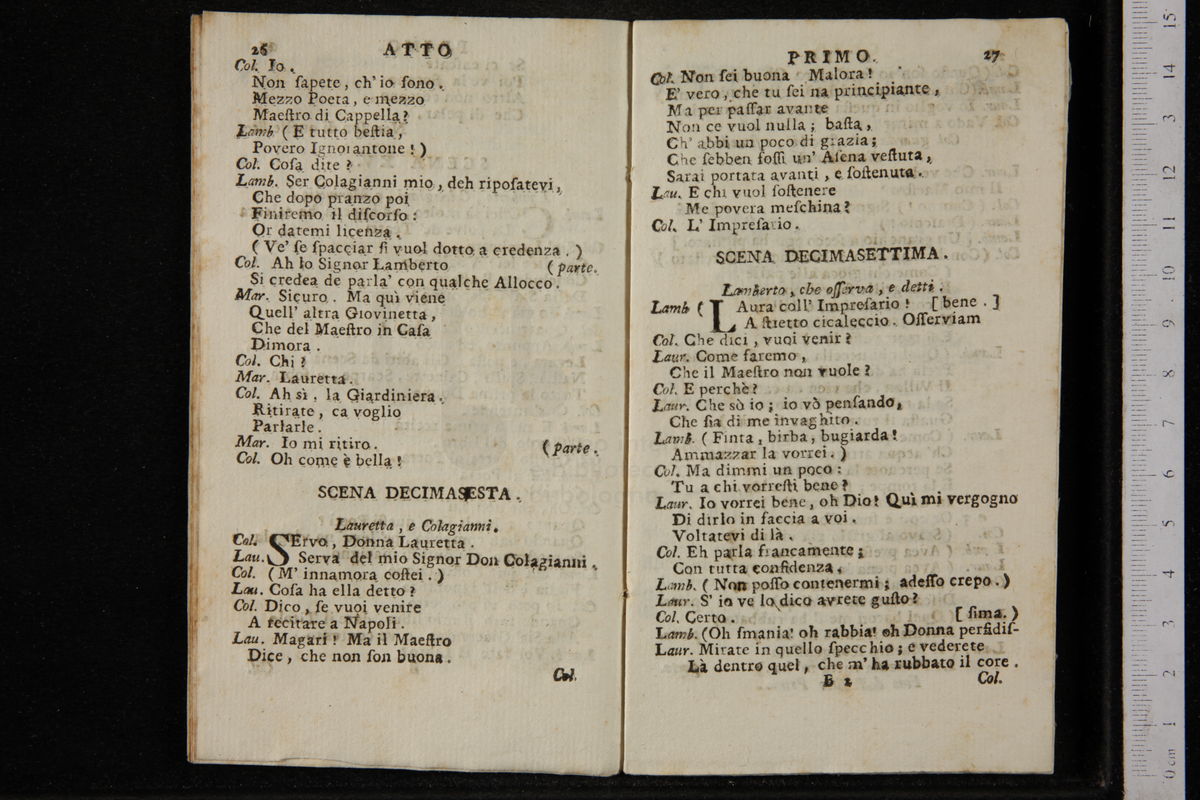 26 ATTO
Col. Io.
Non ſapete, ch' io ſono.
Mezzo Poeta, e mezzo
Maeſtro di Cappella?
Lamb (E tutto beſtia,
Povero Ignorantone!)
Col. Coſa dite?
Lamb. Ser Colagianni mio, deh ripoſatevi,
Che dopo pranzo poi
Finiremo il diſcorſo:
Or datemi licenza.
(Ve' ſe ſpacciar ſi vuol dotto a credenza.)
Col. Ah lo Signor Lamberto (parte.
Si credea de parla' con qualche Allocco.
Mar. Sicuro. Ma quì viene
Quell' altra Giovinetta,
Che del Maeſtro in Caſa
Dimora.
Col. Chi?
Mar. Lauretta.
Col. Ah sì, la Giardiniera.
Ritirate, ca voglio
Parlarle.
Mar. Io mi ritiro. (parte.
Col. Oh come è bella!
SCENA DECIMASESTA.
Lauretta, e Colagianni.
Col. SErvo, Donna Lauretta.
Lau. Serva del mio Signor Don Colagianni.
Col. (M' innamora coſtei.)
Lau. Coſa ha ella detto?
Col. Dico, ſe vuoi venire
A recitare a Napoli.
Lau. Magari! Ma il Maeſtro
Dice, che non ſon buona.
Col.
PRIMO. 27
Col. Non ſei buona Malora!
E' vero, che tu ſei na principiante,
Ma per paſſar avante
Non ce vuol nulla; baſta,
Ch' abbi un poco di grazia;
Che ſebben foſſi un' Aſena veſtuta,
Sarai portata avanti, e ſoſtenuta.
Lau. E chi vuol ſoſtenere
Me povera meſchina?
Col. L' Impreſario.
SCENA DECIMASETTIMA.
Lamberto, che oſſerva, e detti.
Lamb (LAura coll' Impreſario! [bene.]
A ſtretto cicaleccio. Oſſerviam
Col. Che dici, vuoi venir?
Laur. Come faremo,
Che il Maeſtro non vuole?
Col. E perchè?
Laur. Che sò io; io vò penſando,
Che ſia di me invaghito.
Lamb. (Finta, birba, bugiarda!
Ammazzar la vorrei.)
Col. Ma dimmi un poco:
Tu a chi vorreſti bene?
Laur. Io vorrei bene, oh Dio! Quì mi vergogno
Di dirlo in faccia a voi.
Voltatevi di là.
Col. Eh parla francamente;
Con tutta confidenza.
Lamb. (Non poſſo contenermi; adeſſo crepo.)
Laur. S' io ve lo dico avrete guſto?
Col. Certo. [ſima.)
Lamb. (Oh ſmania! oh rabbia! oh Donna perfidiſ-
Laur. Mirate in quello ſpecchio; e vederete
Là dentro quel, che m' ha rubbato il core.
B 2 Col.
0 cm 1 2 3 4 5 6 7 8 9 10 11 12 13 14 15